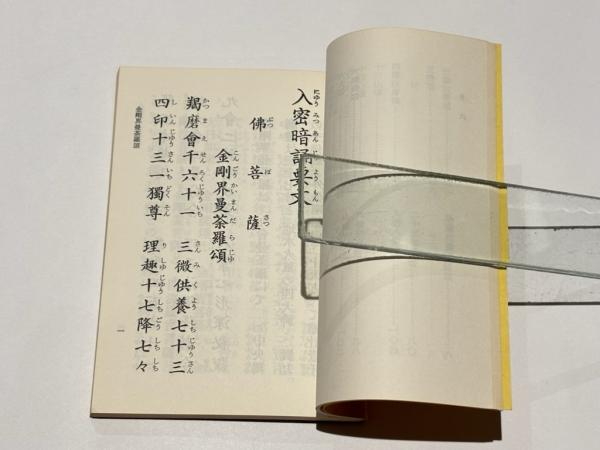 入密暗誦要文
佛菩薩
金剛界曼荼羅頌
羯磨會千六十一 三微供養七十三
四印十三一獨尊 理趣十七降七々
金剛界曼荼羅頌
一